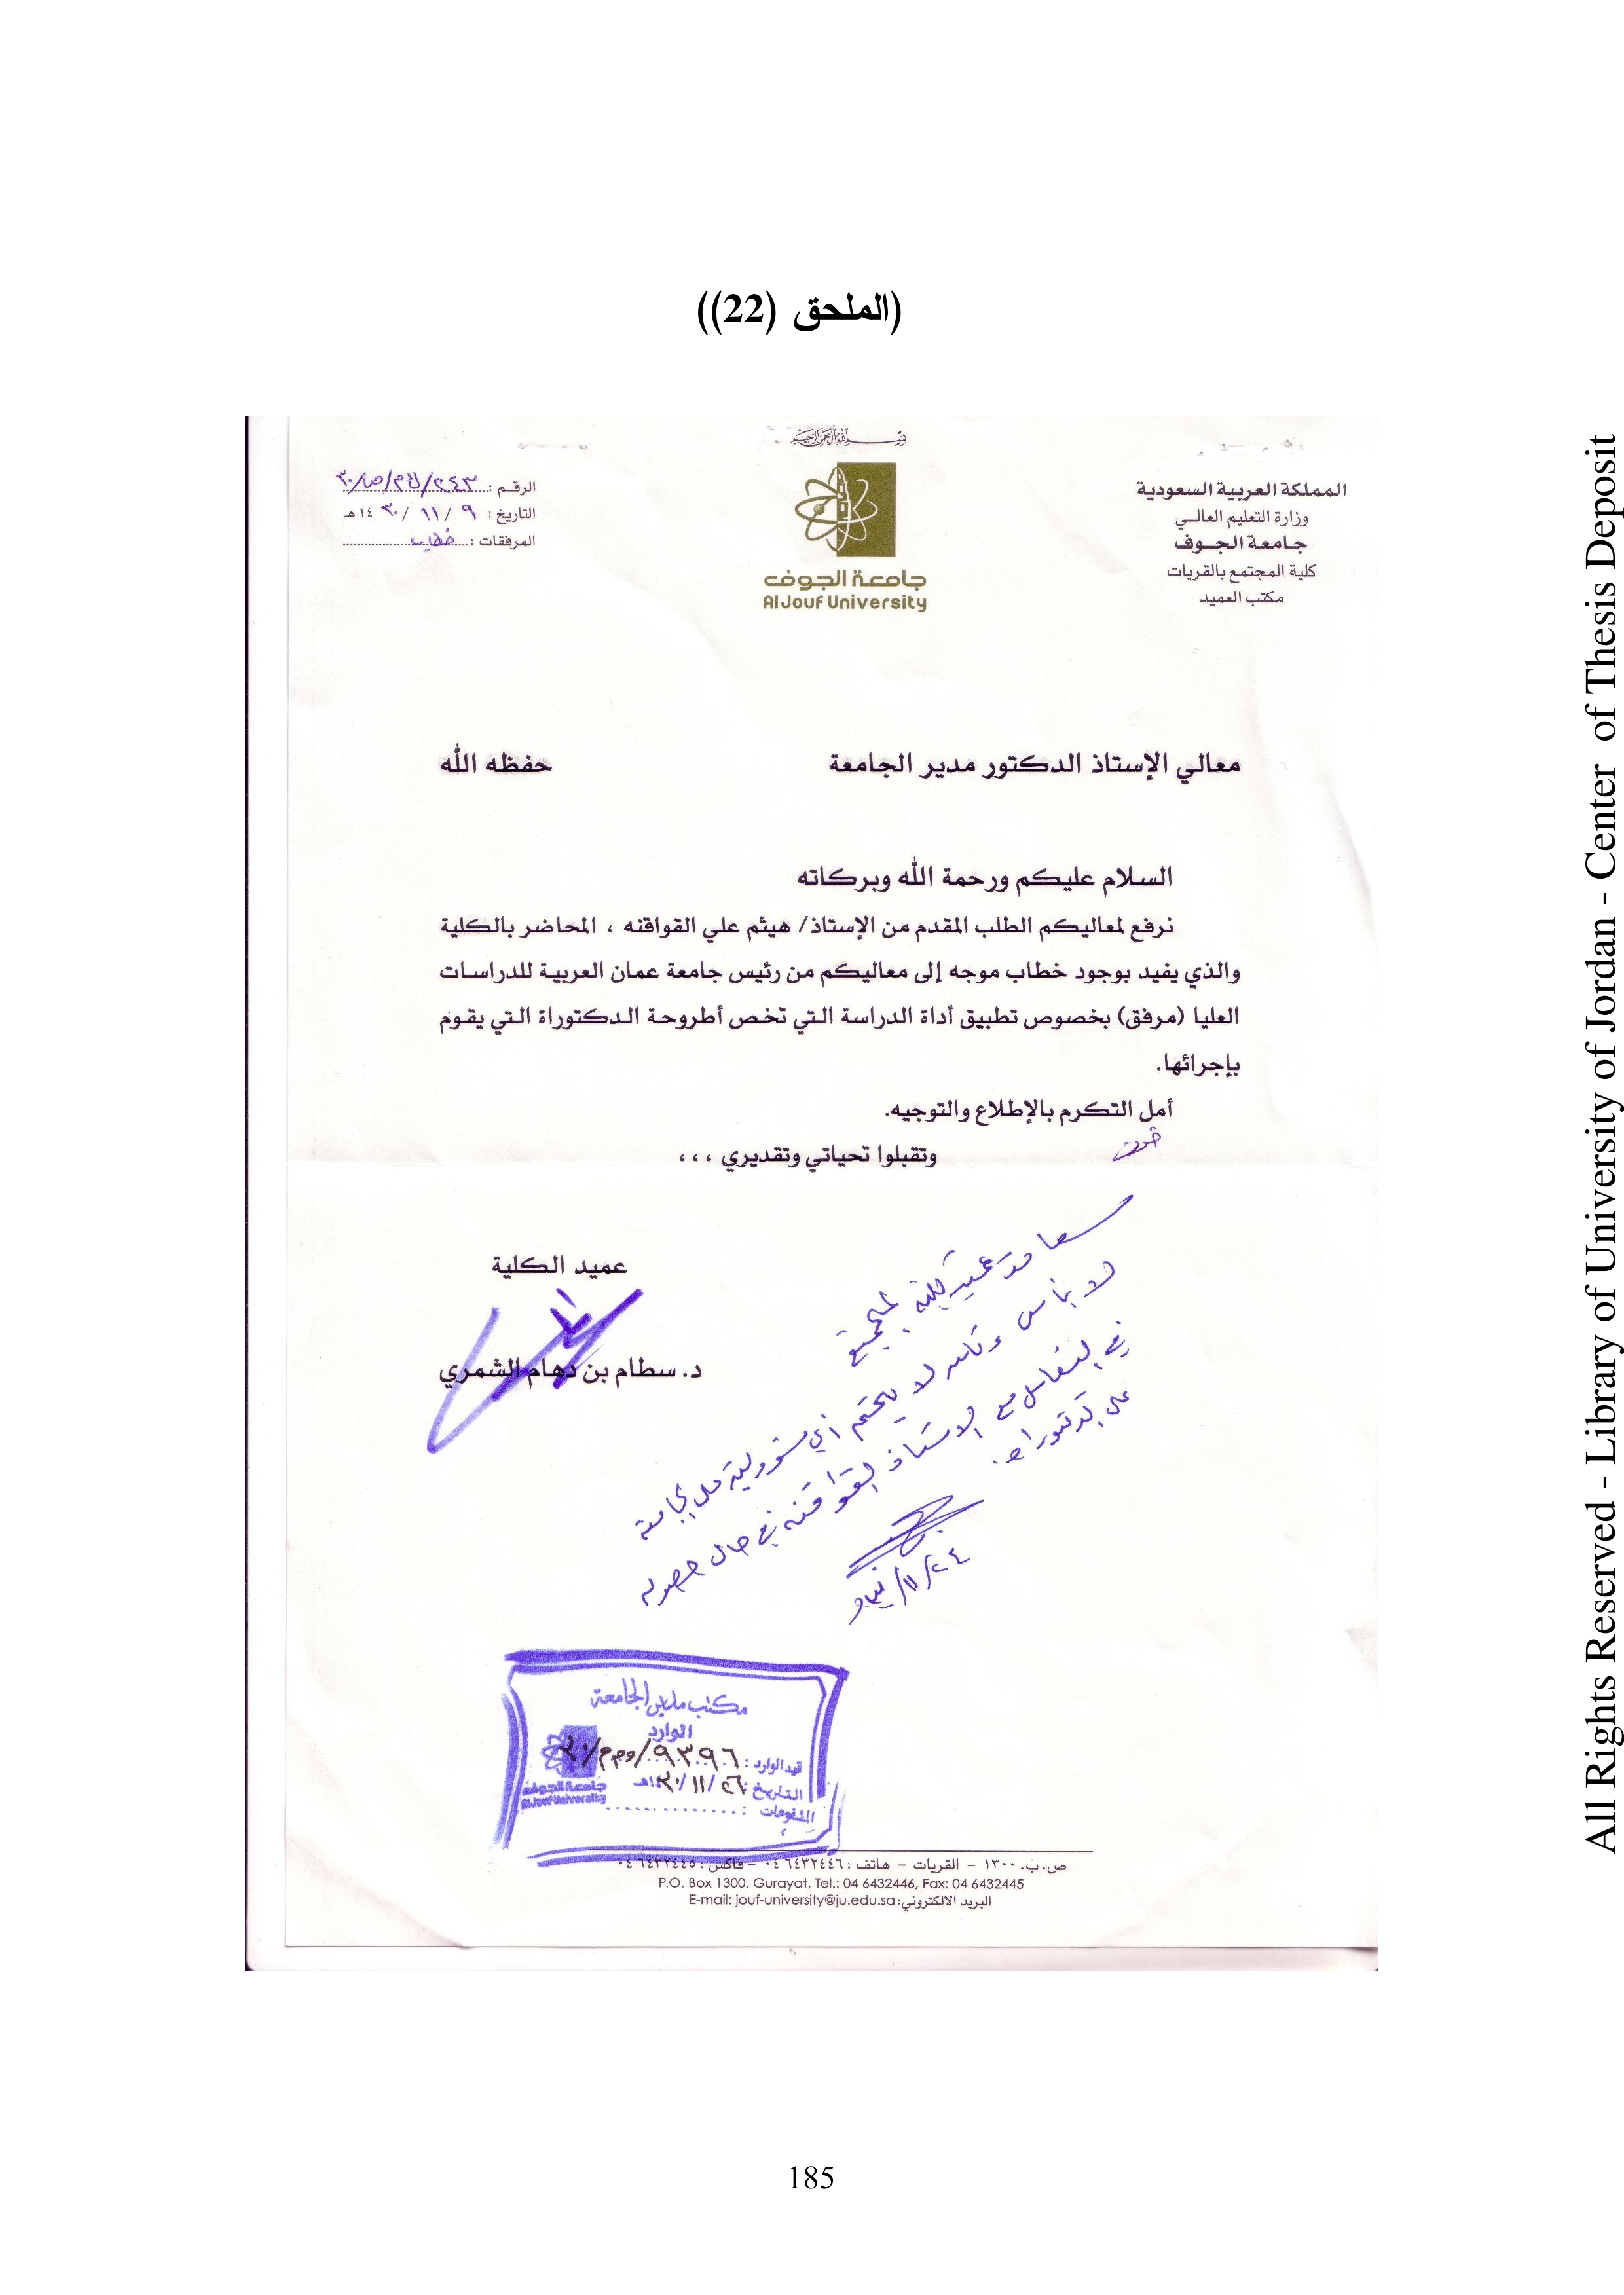 (الملحق (22))
بسم الله الرحمن الرحيم
المملكة العربية السعودية
وزارة التعليم العالـي
جـامعـة الجــوف
كلية المجتمع بالقريات
مكتب العميد
جامعة الجوف
AlJouf University
الرقـم : ٢٤٣/ك م/ص/٣٠
التاريخ : ٩ / ١١ / ١٤٣٠ هـ
المرفقات : خطاب
معالي الإستاذ الدكتور مدير الجامعة حفظه الله
السلام عليكم ورحمة الله وبركاته
نرفع لمعاليكم الطلب المقدم من الإستاذ/ هيثم علي القواقنه ، المحاضر بالكلية
والذي يفيد بوجود خطاب موجه إلى معاليكم من رئيس جامعة عمان العربية للدراسات
العليا (مرفق) بخصوص تطبيق أداة الدراسة التي تخص أطروحة الدكتوراة التي يقوم
بإجرائها.
أمل التكرم بالإطلاع والتوجيه.
وتقبلوا تحياتي وتقديري ، ، ،
عميد الكلية
د. سطام بن دهام الشمري
سعادة عميد كلية المجتمع
لا بأس لا يحتم أي مسؤولية على الجامعة
في التعامل مع الاستاذ القواقنه في حال حصوله
على الدكتوراه.
٢٤/١١/
مكتب مدير الجامعة
الوارد
قيد الوارد : ٩٣٩٦/و م م/٣٠
التاريخ : ٢٦/ ١١/ ١٤٣٠هـ
المشفوعات :
جامعة الجوف
Al Jouf University
ص.ب. ١٣٠٠ - القريات - هاتف : ٠٤٦٤٣٢٤٤٦ - فاكس : ٠٤٦٤٣٢٤٤٥
P.O. Box 1300, Gurayat, Tel.: 04 6432446, Fax: 04 6432445
البريد الالكتروني: E-mail: jouf-university@ju.edu.sa
185
All Rights Reserved - Library of University of Jordan - Center of Thesis Deposit